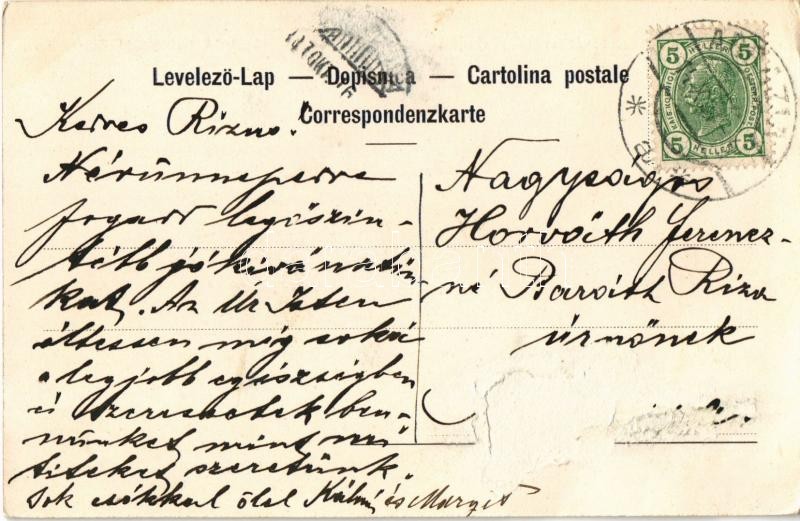 Levelező-Lap — Dopisnica — Cartolina postale
Correspondenzkarte
5 HELLER 5
5 HELLER 5
Kedves Rizus!
Névünnepedre
fogadd legőszin-
tébb jókívánatain-
kat. Az Úr Isten
éltessen még soká
a legjobb egészségben
és szeressetek ben-
nünket mint mi
titeket szeretünk.
Sok csókkal ölel Kálmi és Margit
Nagyságos
Horváth Ferencz-
né Baráth Riza
úrnőnek